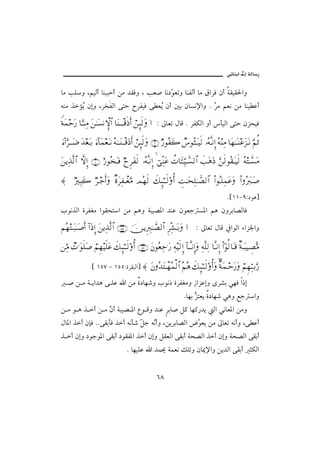 رسالة إلى المبتلى
والحقيقةُ أن فراق ما ألفنا وتعوّدنا صعب ، وفقد من أحببنا أليم، وسلب ما
أُعطينا من نعم مرّ . والإنسان بين أن يُعطى فيفرح حتى الفخر، وإن يُؤخذ منه
فيحزن حتى اليأس أو الكفر . قال تعالى : ﴿ وَلَئِنْ أَذَقْنَا الْإِنسَانَ مِنَّا رَحْمَةً
ثُمَّ نَزَعْنَاهَا مِنْهُ إِنَّهُ لَيَئُوسٌ كَفُورٌ ۝ وَلَئِنْ أَذَقْنَاهُ نَعْمَاءَ بَعْدَ ضَرَّاءَ
مَسَّتْهُ لَيَقُولَنَّ ذَهَبَ السَّيِّئَاتُ عَنِّي إِنَّهُ لَفَرِحٌ فَخُورٌ ۝ إِلَّا الَّذِينَ
صَبَرُوا وَعَمِلُوا الصَّالِحَاتِ أُولَئِكَ لَهُم مَّغْفِرَةٌ وَأَجْرٌ كَبِيرٌ ﴾
[هود:٩-١١].
فالصابرون هم المسترجعون عند المصيبة وهم من استحقوا مغفرة الذنوب
والجزاء الوافي قال تعالى : ﴿ وَبَشِّرِ الصَّابِرِينَ ۝ الَّذِينَ إِذَا أَصَابَتْهُم
مُّصِيبَةٌ قَالُوا إِنَّا لِلَّهِ وَإِنَّا إِلَيْهِ رَاجِعُونَ ۝ أُولَئِكَ عَلَيْهِمْ صَلَوَاتٌ مِّن
رَّبِّهِمْ وَرَحْمَةٌ وَأُولَئِكَ هُمُ الْمُهْتَدُونَ ﴾ [البقرة:١٥٥ - ١٥٧ ]
إذاً فهي بشرى وإعزاز ومغفرة ذنوب وشهادةٌ من الله على هدايـة مـن صـبر
واسترجع وهي شهادةٌ يعتزُّ بها.
ومن المعاني التي يدركها كل صابرٍ عند وقوع المصيبة أنّ مـن أخـذ هـو مـن
أعطى، وأنه تعالى من يعوّض الصابرين، وأنّه جلّ شأنه أخذ فأبقى.. فإن أخذ المال
أبقى الصحة وإن أخذ الصحة أبقى العقل وإن أخذ المفقود أبقى الموجود وإن أخـذ
الكثير أبقى الدين والإيمان وتلك نعمة يُحمد الله عليها .
٦٨